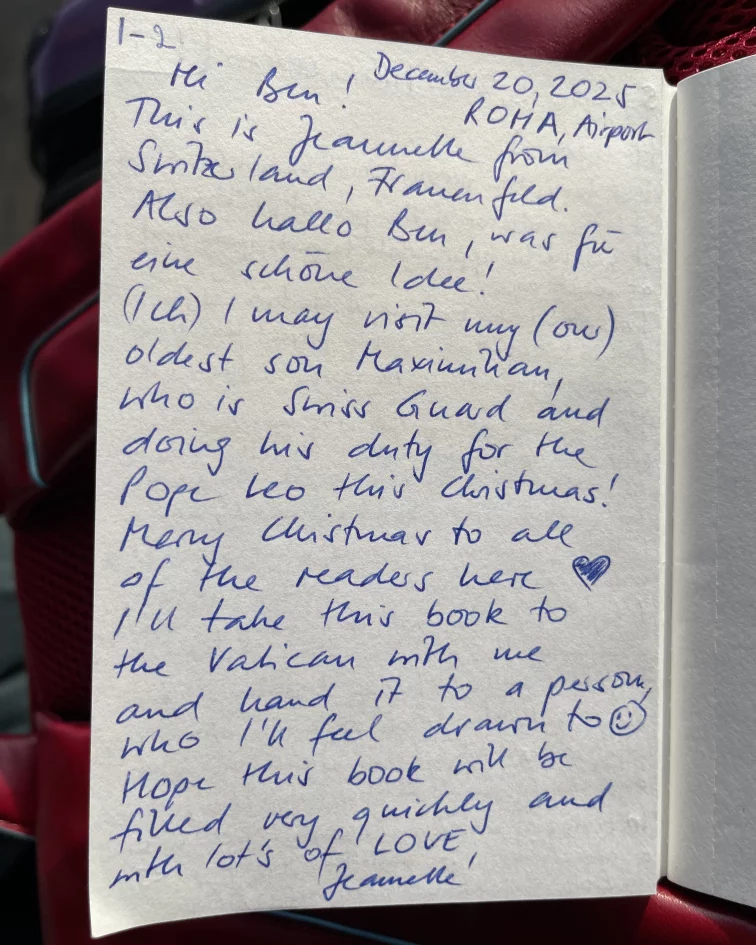 1-2
December 20, 2025
Hi Ben!
ROMA, Airport
This is Jeannette from
Switzerland, Frauenfeld.
Also hallo Ben, was für
eine schöne Idee!
(Ich) I may visit my (our)
oldest son Maximilian,
who is Swiss Guard and
doing his duty for the
Pope Leo this Christmas!
Merry Christmas to all
of the readers here ♥
I'll take this book to
the Vatican with me
and hand it to a person,
who I'll feel drawn to ☺
Hope this book will be
filled very quickly and
with lot's of LOVE!
Jeannette